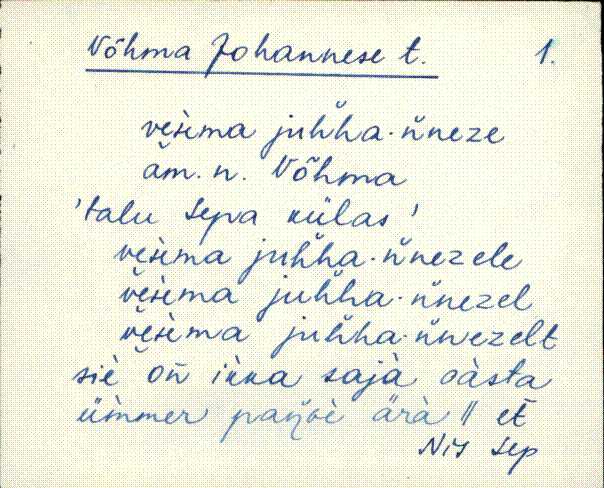 Võhma Johannese t. 1.
ve̬i̬ma juh̆ha·n̆neze
äm. n. Võhma
'talu Sepa külas'
ve̬i̬ma juh̆ha·n̆nezele
ve̬i̬ma juh̆ha·n̆nezel
ve̬i̬ma juh̆ha·n̆nezelt
siè on̄ ikka sajà oàsta
ümmer ärà || et̄
Nis Sep